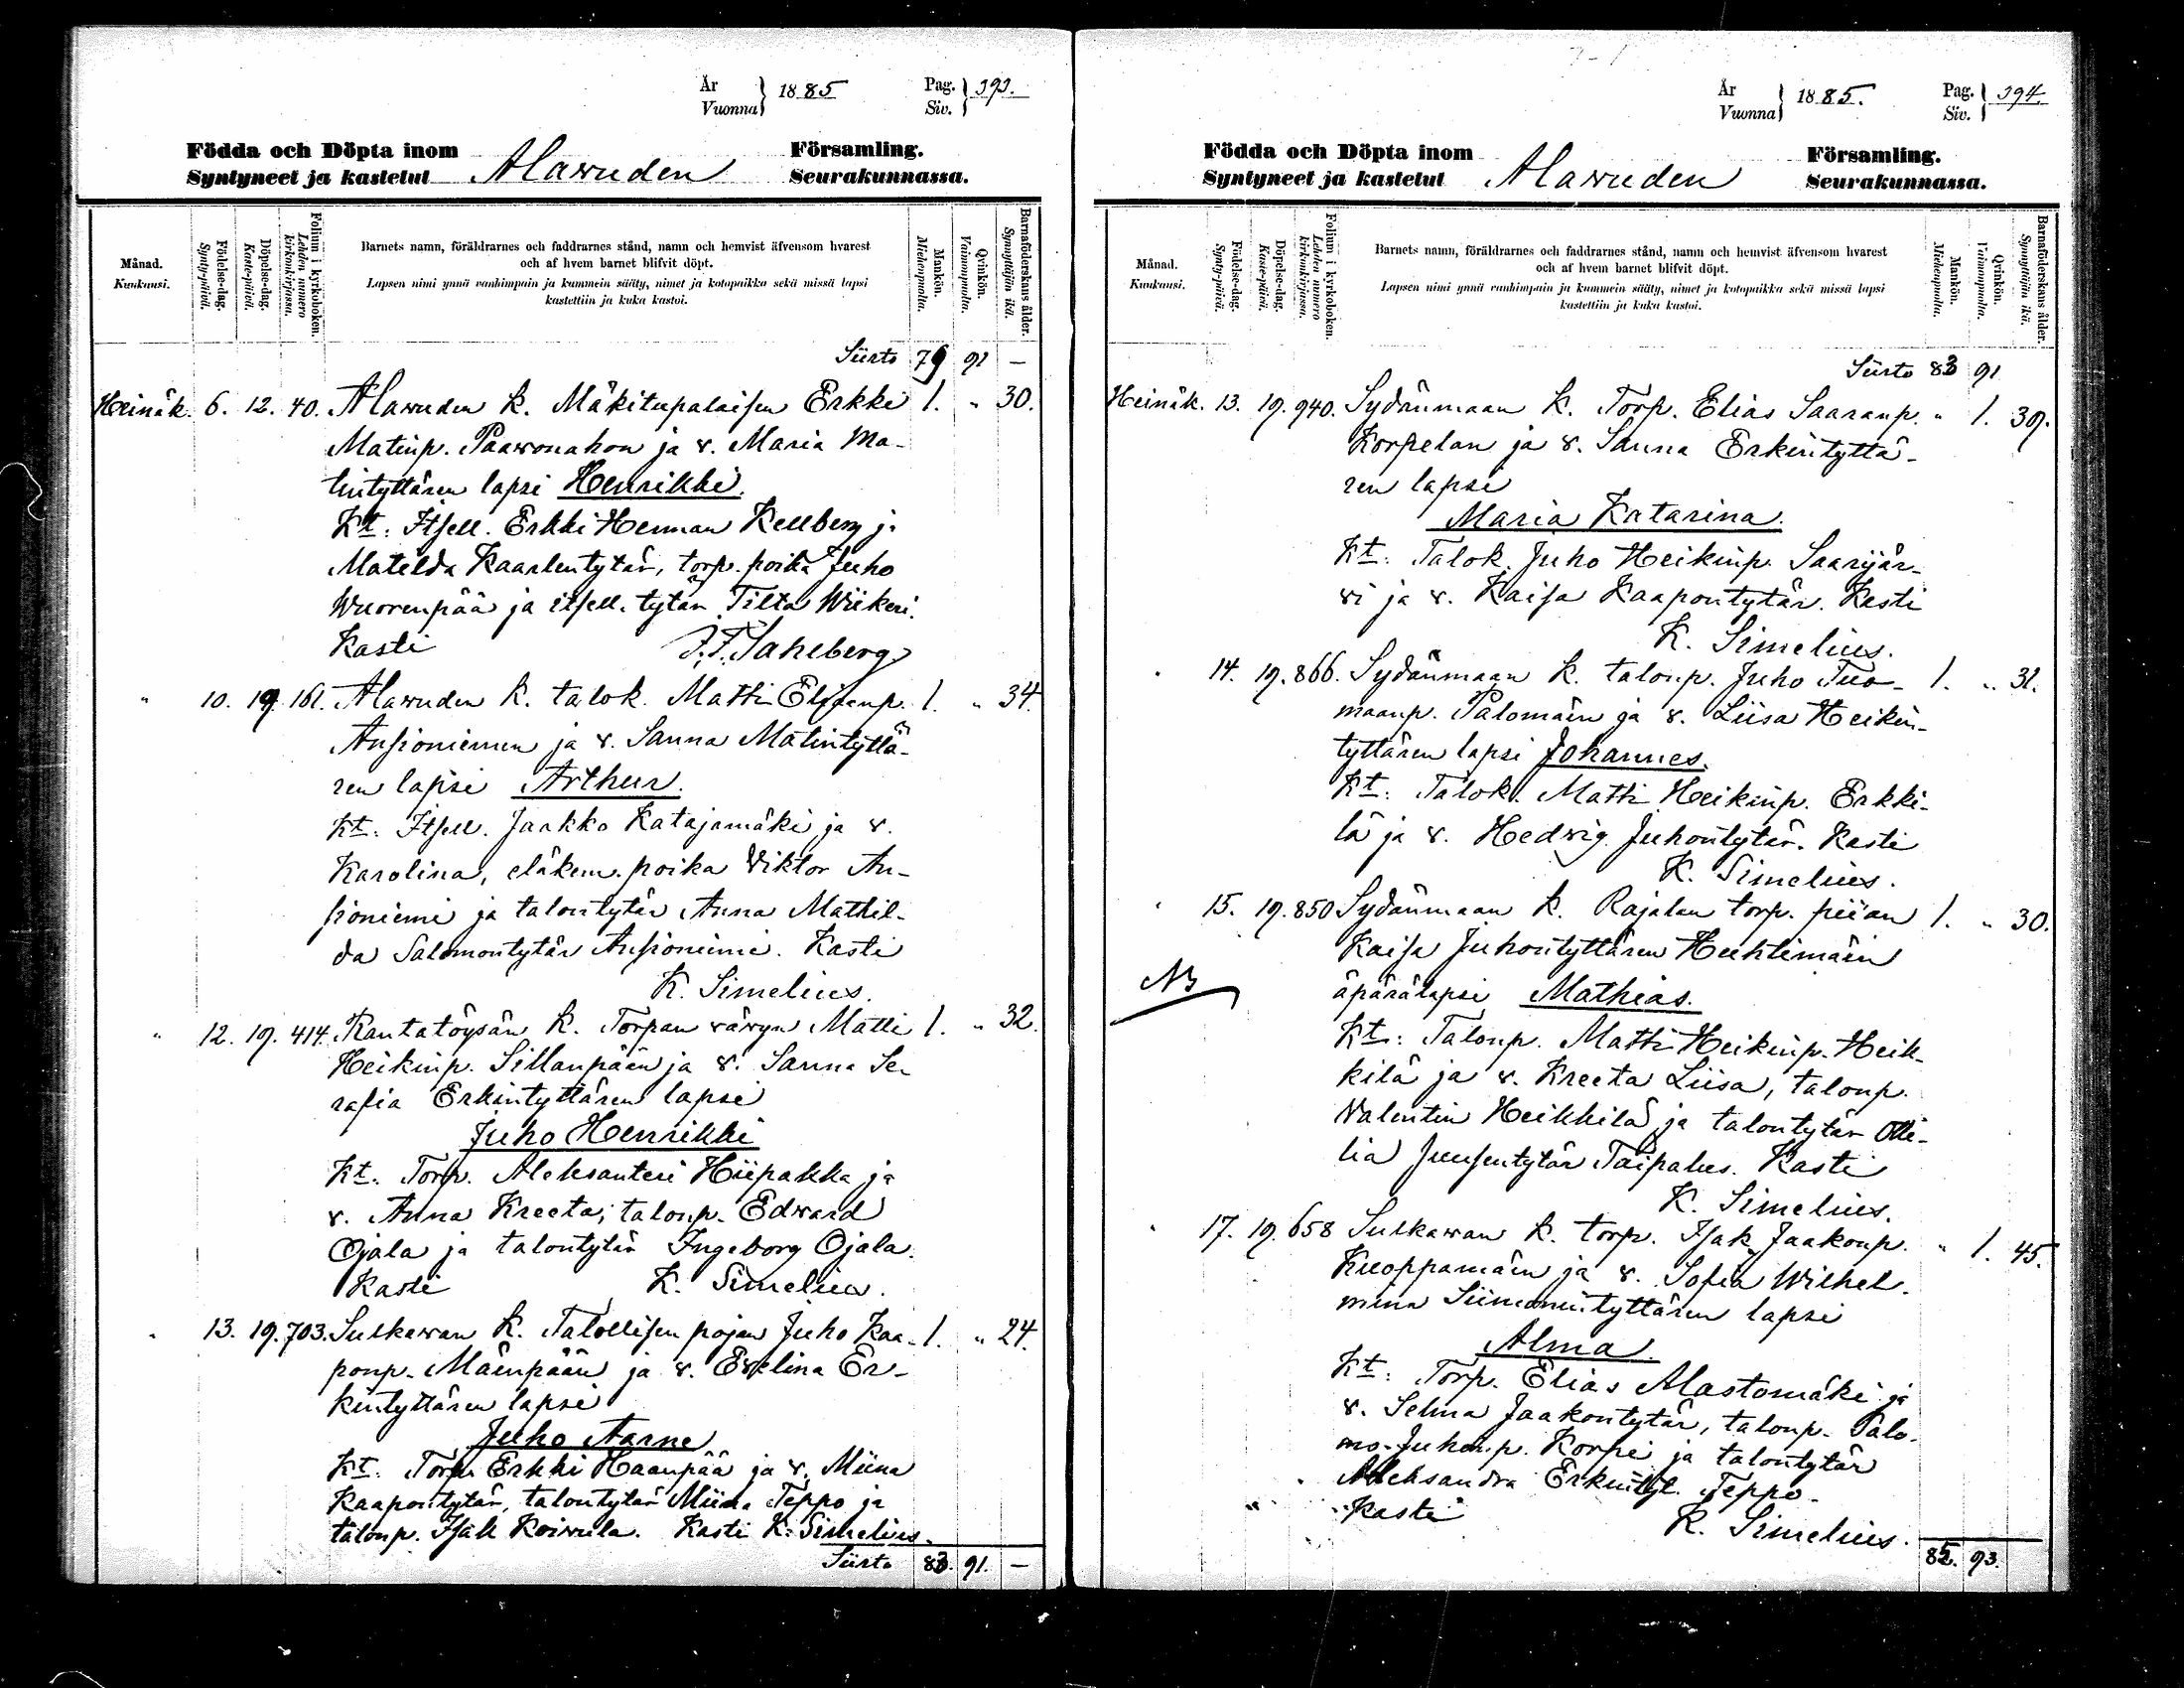 År
Vuonna } 1885 Pag.
Siv. } 393.
Födda och Döpta inom
Syntyneet ja kastetut Alawuden Församling.
Seurakunnassa.
Månad.
Kuukausi.
Födelse-dag.
Synty-päivä.
Döpelse-dag.
Kaste-päivä.
Folium i kyrkoboken.
Lehden numero
kirkonkirjassa.
Barnets namn, föräldrarnes och faddrarnes stånd, namn och hemvist äfvensom hvarest
och af hvem barnet blifvit döpt.
Lapsen nimi ynnä vanhimpain ja kummein sääty, nimet ja kotopaikka sekä missä lapsi
kastettiin ja kuka kastoi.
Mankön.
Miehenpuolta.
Qvinkön.
Vaimonpuolta.
Barnaföderskans ålder.
Synnyttäjän ikä.
Siirto 79 91 —
Heinäk. 6. 12. 40. Alawuden k. Mäkitupalaisen Erkki 1. " 30.
Matinp. Paawonahon ja v. Maria Ma-
tintyttären lapsi Henrikki.
Kt: Itsell. Erkki Herman Kellberg ja
Matilda Kaarlentytär, torp. poika Juho
Wuorenpää ja itsell. tytär Tilta Wiikeri.
Kasti J. F. Saheberg
" 10. 19. 161. Alawuden k. talok. Matti Eliaanp. 1. " 34.
Ansioniemen ja v. Sanna Matintyttä-
ren lapsi Arthur.
Kt: Itsell. Jaakko Katajamäki ja v.
Karolina, eläkem. poika Viktor An-
sioniemi ja talontytär Anna Mathil-
da Salomontytär Ansioniemi. Kasti
K. Simelius.
" 12. 19. 414. Rantatöysän k. Torpan vävyn Matti 1. " 32.
Heikinp. Sillanpään ja v. Sanna Se-
rafia Erkintyttären lapsi
Juho Henrikki
Kt: Torp. Aleksanteri Hiipakka ja
v. Anna Kreeta; talonp. Edward
Ojala ja talontytär Ingeborg Ojala.
Kasti K. Simelius.
" 13. 19. 703. Sulkawan k. Talollisen pojan Juho Kaa- 1. " 24.
ponp. Mäenpään ja v. Evelina Er-
kintyttären lapsi
Juho Aarne
Kt: Torp. Erkki Haanpää ja v. Miina
Kaapontytär, talontytär Miina Teppo ja
talonp. Isak Koiwula. Kasti K. Simelius.
Siirto 83. 91. —
År
Vuonna } 1885. Pag.
Siv. } 394.
Födda och Döpta inom
Syntyneet ja kastetut Alawuden Församling.
Seurakunnassa.
Månad.
Kuukausi.
Födelse-dag.
Synty-päivä.
Döpelse-dag.
Kaste-päivä.
Folium i kyrkoboken.
Lehden numero
kirkonkirjassa.
Barnets namn, föräldrarnes och faddrarnes stånd, namn och hemvist äfvensom hvarest
och af hvem barnet blifvit döpt.
Lapsen nimi ynnä vanhimpain ja kummein sääty, nimet ja kotopaikka sekä missä lapsi
kastettiin ja kuka kastoi.
Mankön.
Miehenpuolta.
Qvinkön.
Vaimonpuolta.
Barnaföderskans ålder.
Synnyttäjän ikä.
Siirto 83 91
Heinäk. 13. 19. 940. Sydänmaan k. Torp. Elias Saaranp. " 1. 39.
Korpelan ja v. Sanna Erkintyttä-
ren lapsi
Maria Katarina.
Kt: Talok. Juho Heikinp. Saarijär-
vi ja v. Kaisa Kaapontytär. Kasti
K. Simelius.
" 14. 19. 866. Sydänmaan k. talonp. Juho Tuo- 1. " 31.
maanp. Palomäen ja v. Liisa Heikin-
tyttären lapsi Johannes.
Kt: Talok. Matti Heikinp. Erkki-
lä ja v. Hedvig Juhontytär. Kasti
K. Simelius.
" 15. 19. 850 Sydänmaan k. Rajalan torp. piian 1. " 30.
Kaisa Juhontyttären Huhtimäen
NB
äpärälapsi Mathias.
Kt: Talonp. Matti Heikinp. Heik-
kilä ja v. Kreeta Liisa, talonp.
Valentin Heikkilä ja talontytär Otti-
lia Juusentytär Taipalus. Kasti
K. Simelius.
" 17. 19. 658 Sulkawan k. torp. Isak Jaakonp. " 1. 45.
Kuoppamäen ja v. Sofia Wilhel-
mina Siimonintyttären lapsi
Alma.
Kt: Torp. Elias Alastomäki ja
v. Selma Jaakontytär, talonp. Salo-
mo Juhonp. Korpi ja talontytär
Aleksandra Erkintyt. Teppo.
Kasti K. Simelius.
85. 93.